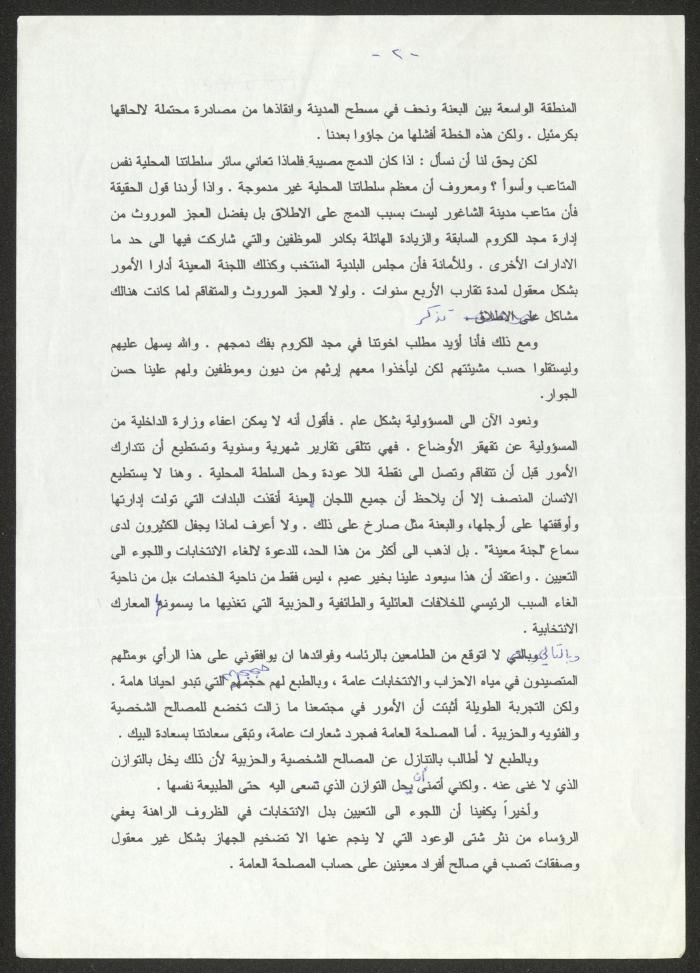 - ٢ -
المنطقة الواسعة بين البعنة ونحف في مسطح المدينة وانقاذها من مصادرة محتملة لالحاقها
بكرمئيل . ولكن هذه الخطة أفشلها من جاؤوا بعدنا .
لكن يحق لنا أن نسأل : اذا كان الدمج مصيبة فلماذا تعاني سائر سلطاتنا المحلية نفس
المتاعب وأسوأ ؟ ومعروف أن معظم سلطاتنا المحلية غير مدموجة . واذا أردنا قول الحقيقة
فأن متاعب مدينة الشاغور ليست بسبب الدمج على الاطلاق بل بفضل العجز الموروث من
إدارة مجد الكروم السابقة والزيادة الهائلة بكادر الموظفين والتي شاركت فيها الى حد ما
الادارات الأخرى . وللأمانة فأن مجلس البلدية المنتخب وكذلك اللجنة المعينة أدارا الأمور
بشكل معقول لمدة تقارب الأربع سنوات . ولولا العجز الموروث والمتفاقم لما كانت هنالك
مشاكل على الاطلاق تذكر
ومع ذلك فأنا أؤيد مطلب اخوتنا في مجد الكروم بفك دمجهم . والله يسهل عليهم
وليستقلوا حسب مشيئتهم لكن ليأخذوا معهم إرثهم من ديون وموظفين ولهم علينا حسن
الجوار.
ونعود الآن الى المسؤولية بشكل عام . فأقول أنه لا يمكن اعفاء وزارة الداخلية من
المسؤولية عن تقهقر الأوضاع . فهي تتلقى تقارير شهرية وسنوية وتستطيع أن تتدارك
الأمور قبل أن تتفاقم وتصل الى نقطة اللا عودة وحل السلطة المحلية . وهنا لا يستطيع
الانسان المنصف إلا أن يلاحظ أن جميع اللجان العينة أنقذت البلدات التي تولت إدارتها
وأوقفتها على أرجلها، والبعنة مثل صارخ على ذلك . ولا أعرف لماذا يجفل الكثيرون لدى
سماع "لجنة معينة" . بل اذهب الى أكثر من هذا الحد، للدعوة لالغاء الانتخابات واللجوء الى
التعيين . واعتقد أن هذا سيعود علينا بخير عميم ، ليس فقط من ناحية الخدمات ،بل من ناحية
الغاء السبب الرئيسي للخلافات العائلية والطائفية والحزبية التي تغذيها ما يسمونها المعارك
الانتخابية .
وبالتالي وبالتي لا اتوقع من الطامعين بالرئاسه وفوائدها ان يوافقوني على هذا الرأي ،ومثلهم
المتصيدون في مياه الاحزاب والانتخابات عامة ، وبالطبع لهم حججهم حججهم التي تبدو احيانا هامة .
ولكن التجربة الطويلة أثبتت أن الأمور في مجتمعنا ما زالت تخضع للمصالح الشخصية
والفئويه والحزبية . أما المصلحة العامة فمجرد شعارات عامة، وتبقى سعادتنا بسعادة البيك .
وبالطبع لا أطالب بالتنازل عن المصالح الشخصية والحزبية لأن ذلك يخل بالتوازن
الذي لا غنى عنه . ولكني أتمنى أن يحل التوازن الذي تسعى اليه حتى الطبيعة نفسها .
وأخيراً يكفينا أن اللجوء الى التعيين بدل الانتخابات في الظروف الراهنة يعفي
الرؤساء من نثر شتى الوعود التي لا ينجم عنها الا تضخيم الجهاز بشكل غير معقول
وصفقات تصب في صالح أفراد معينين على حساب المصلحة العامة .